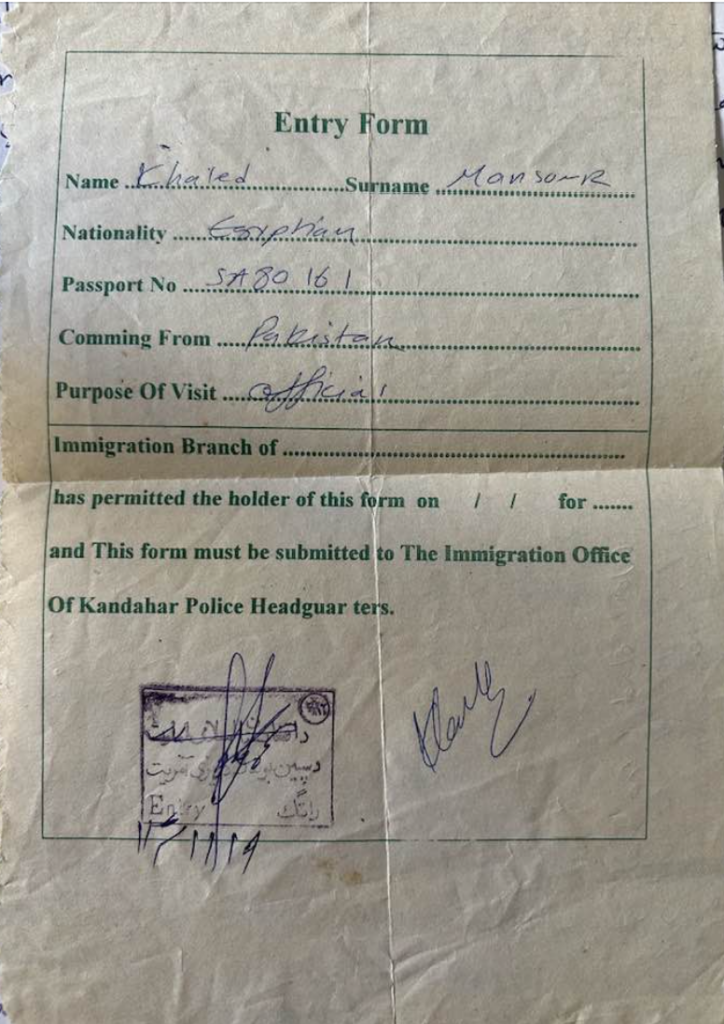 Entry Form
Name ..Khaled..............Surname ..Mansour
Nationality .....Egyptian.................................
Passport No ....SA80 16 1.................................
Comming From ....Pakistan.................................
Purpose Of Visit ...official.................................
Immigration Branch of ............................................................
has permitted the holder of this form on / / for .......
and This form must be submitted to The Immigration Office
Of Kandahar Police Headguar ters.
د
دسپین بولدک
Entry راتگ